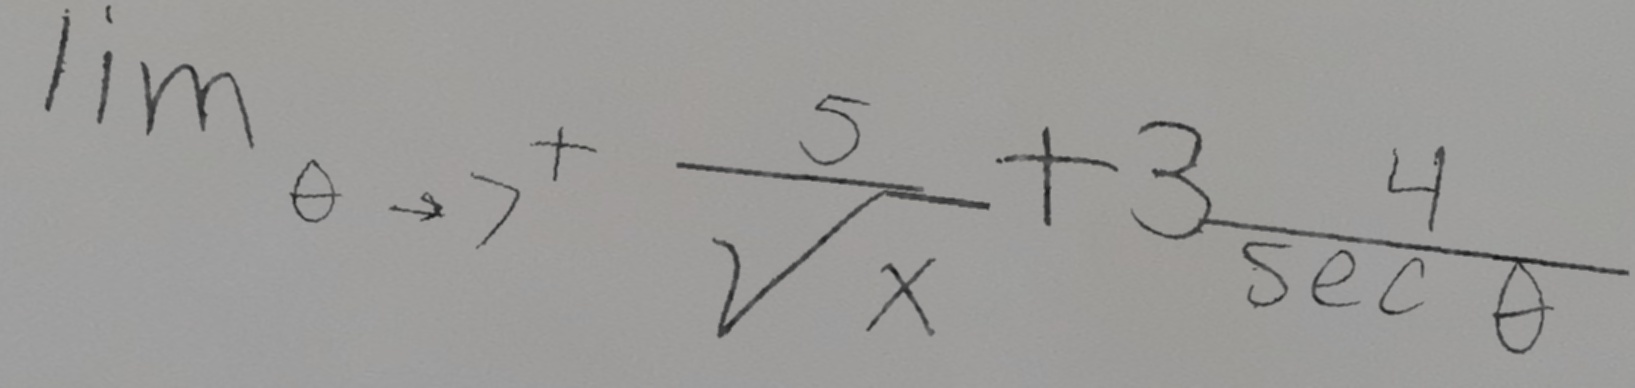 lim θ → 7⁺ 5/√x + 3 4/sec θ